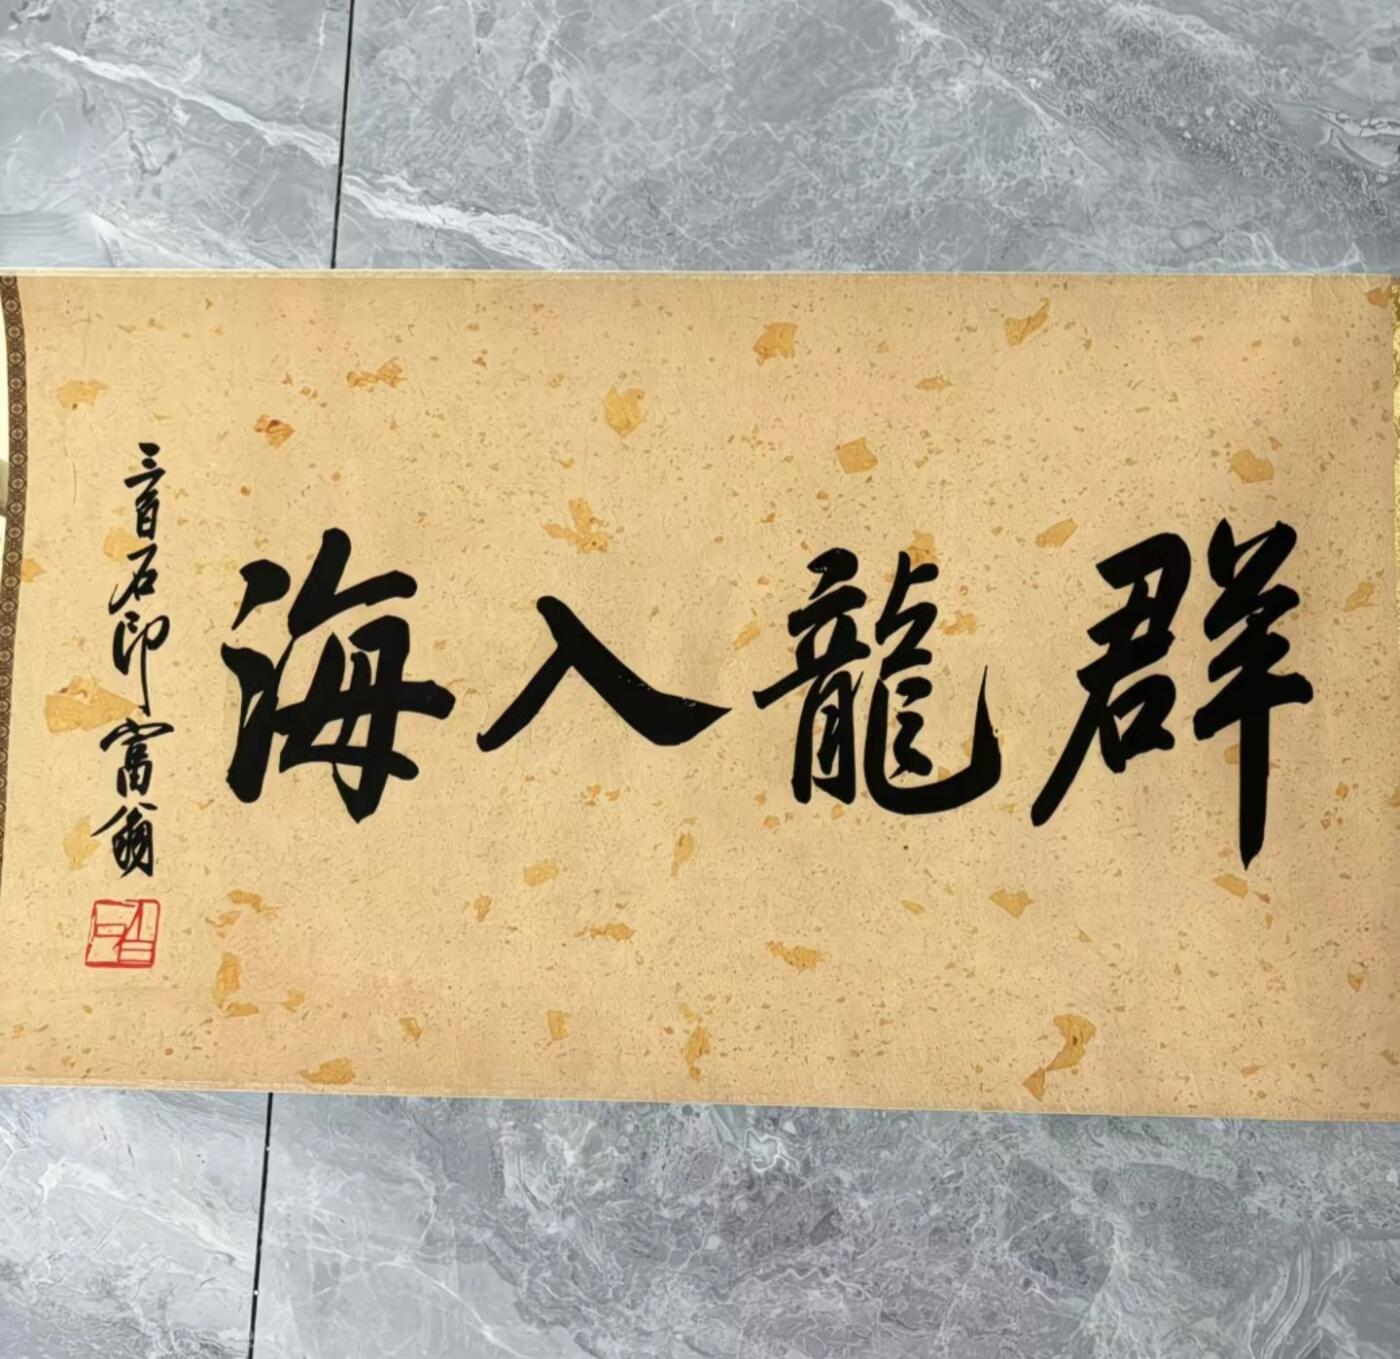 群龍入海
三百石印富翁